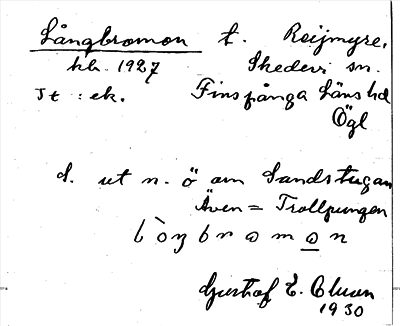 Långbromon t. Reijmyre,
hbl. 1927 Skedevi sn.
Jt : ek. Finspånga Läns hd
Ögl
S. ut n. ö om Sandstugan
Även = Trollpungen
Gustaf E. Olsson
1930